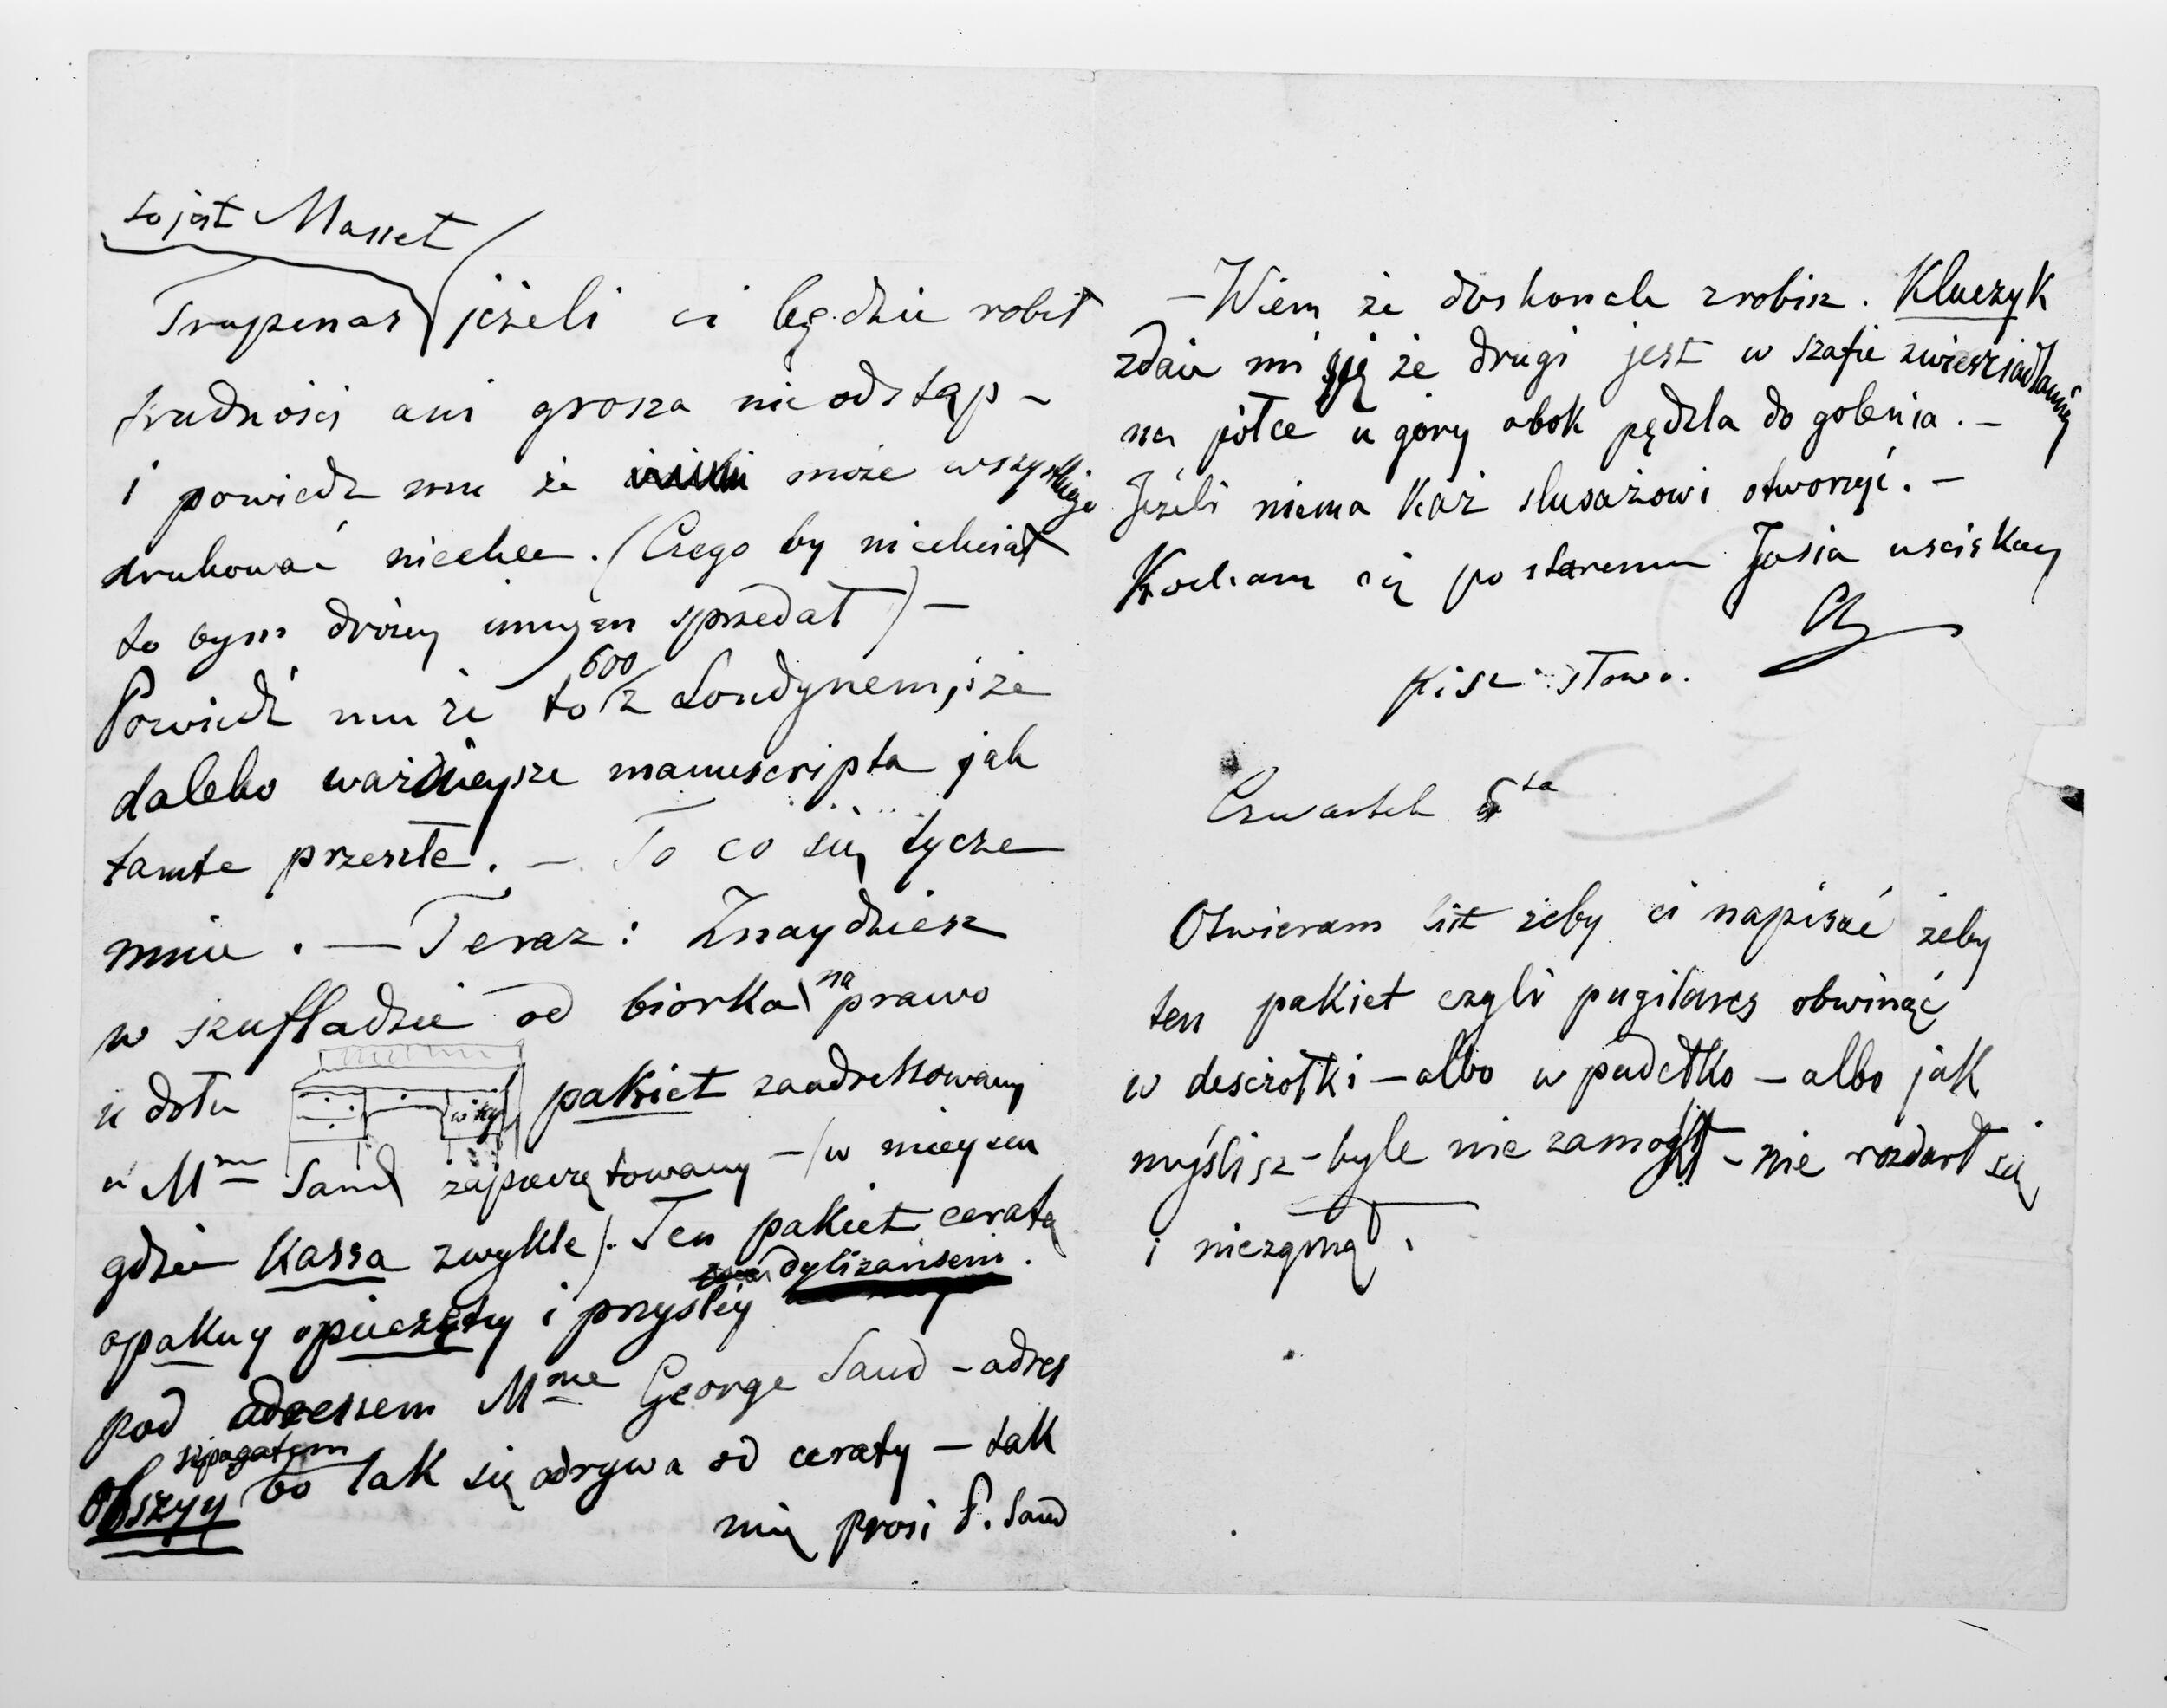 to jest Masset
Trupenas jeżeli ci będzie robił
trudności ani grosza nieodstąp –
i powiedz mu że może wszystkiego
drukować niechce. (Czego by niechciał
to bym dróżej innym sprzedał) –
Powiedź mu że to 600 z Londynem, i że
daleko ważnieysze manuscripta jak
tamte przeszłe. – To co się tycze
mnie. — Teraz: Znaydziesz
w szufladzie od biorka na prawo
u dołu w tey pakiet zaadressowany
u Mme Sand zapieczętowany – (w mieyscu
gdzie Kassa zwykle). Ten pakiet ceratą
opakuy opieczętuy i przyśley dyliżansem.
pod adressem Mme George Sand – adres
Obszyy szpagatem bo tak się odrywa od ceraty – tak
mię prosi P. Sand
– Wiem że doskonale zrobisz. Kluczyk
zdaie mi się że drugi jest w szafie zwierciadlanéj
na półce u góry obok pędzla do golenia. –
Jeżeli niema każ slusarzowi otworzyć. –
Kocham cię po staremu Jasia usciskay
Ch
Pisz słowo.
Czwartek 5ta
Otwieram list żeby ci napisać żeby
ten pakiet czyli pugilares obwinąć
w desczółki – albo w pudełko – albo jak
myślisz – byle nie zamókł – nie rozdarł się
i niezginął.